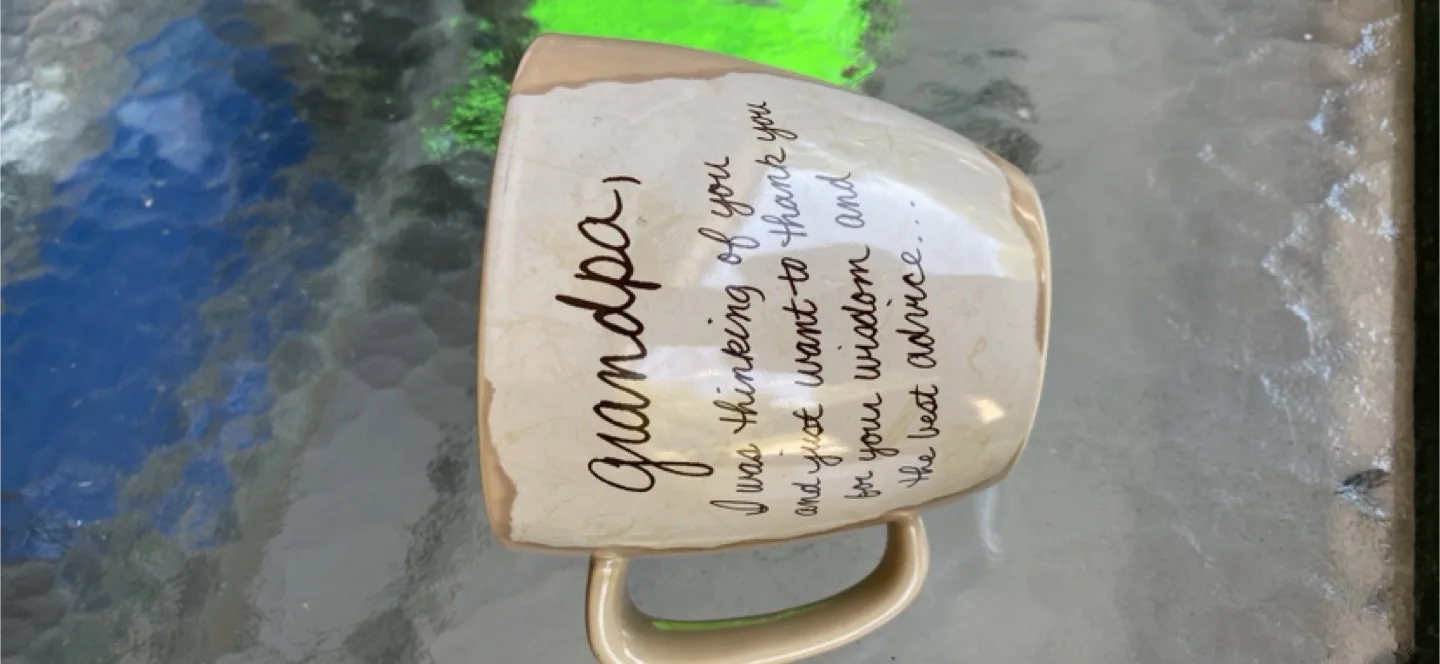 Grandpa,
I was thinking of you
and just want to thank you
for you wisdom and
the best advice...